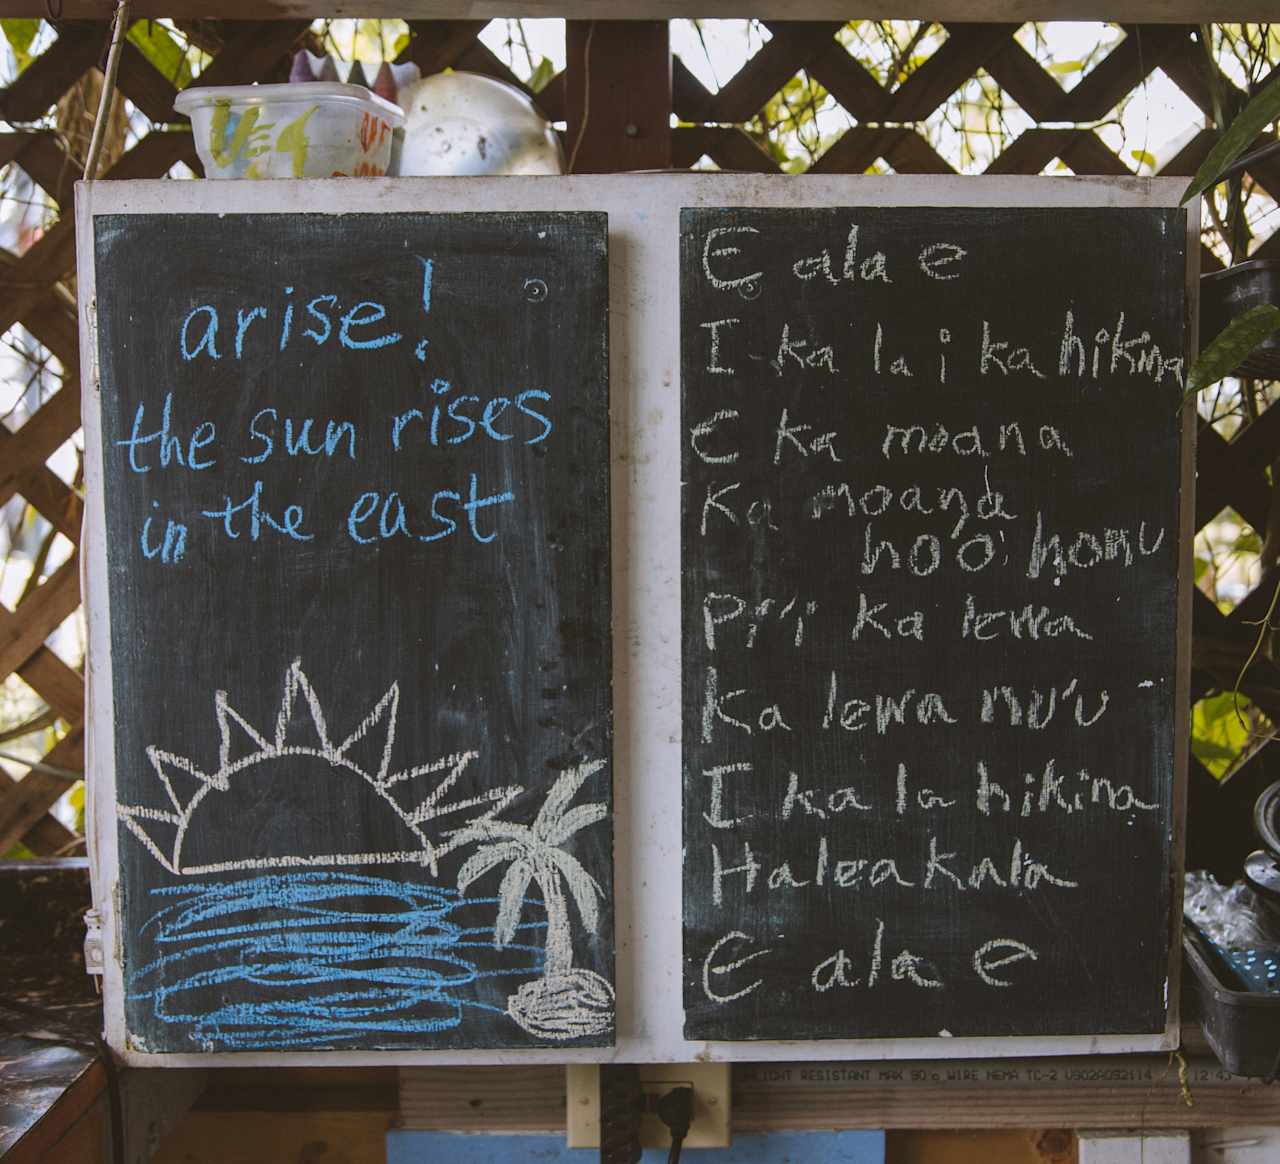 arise!
the sun rises
in the east
E ala e
I ka la i ka hikina
E ka moana
Ka moana
ho'o honu
Pi'i ka lewa
Ka lewa nu'u
I ka la hikina
Haleakala
E ala e
RESISTANT MAX 90°C WIRE NEMA TC-2